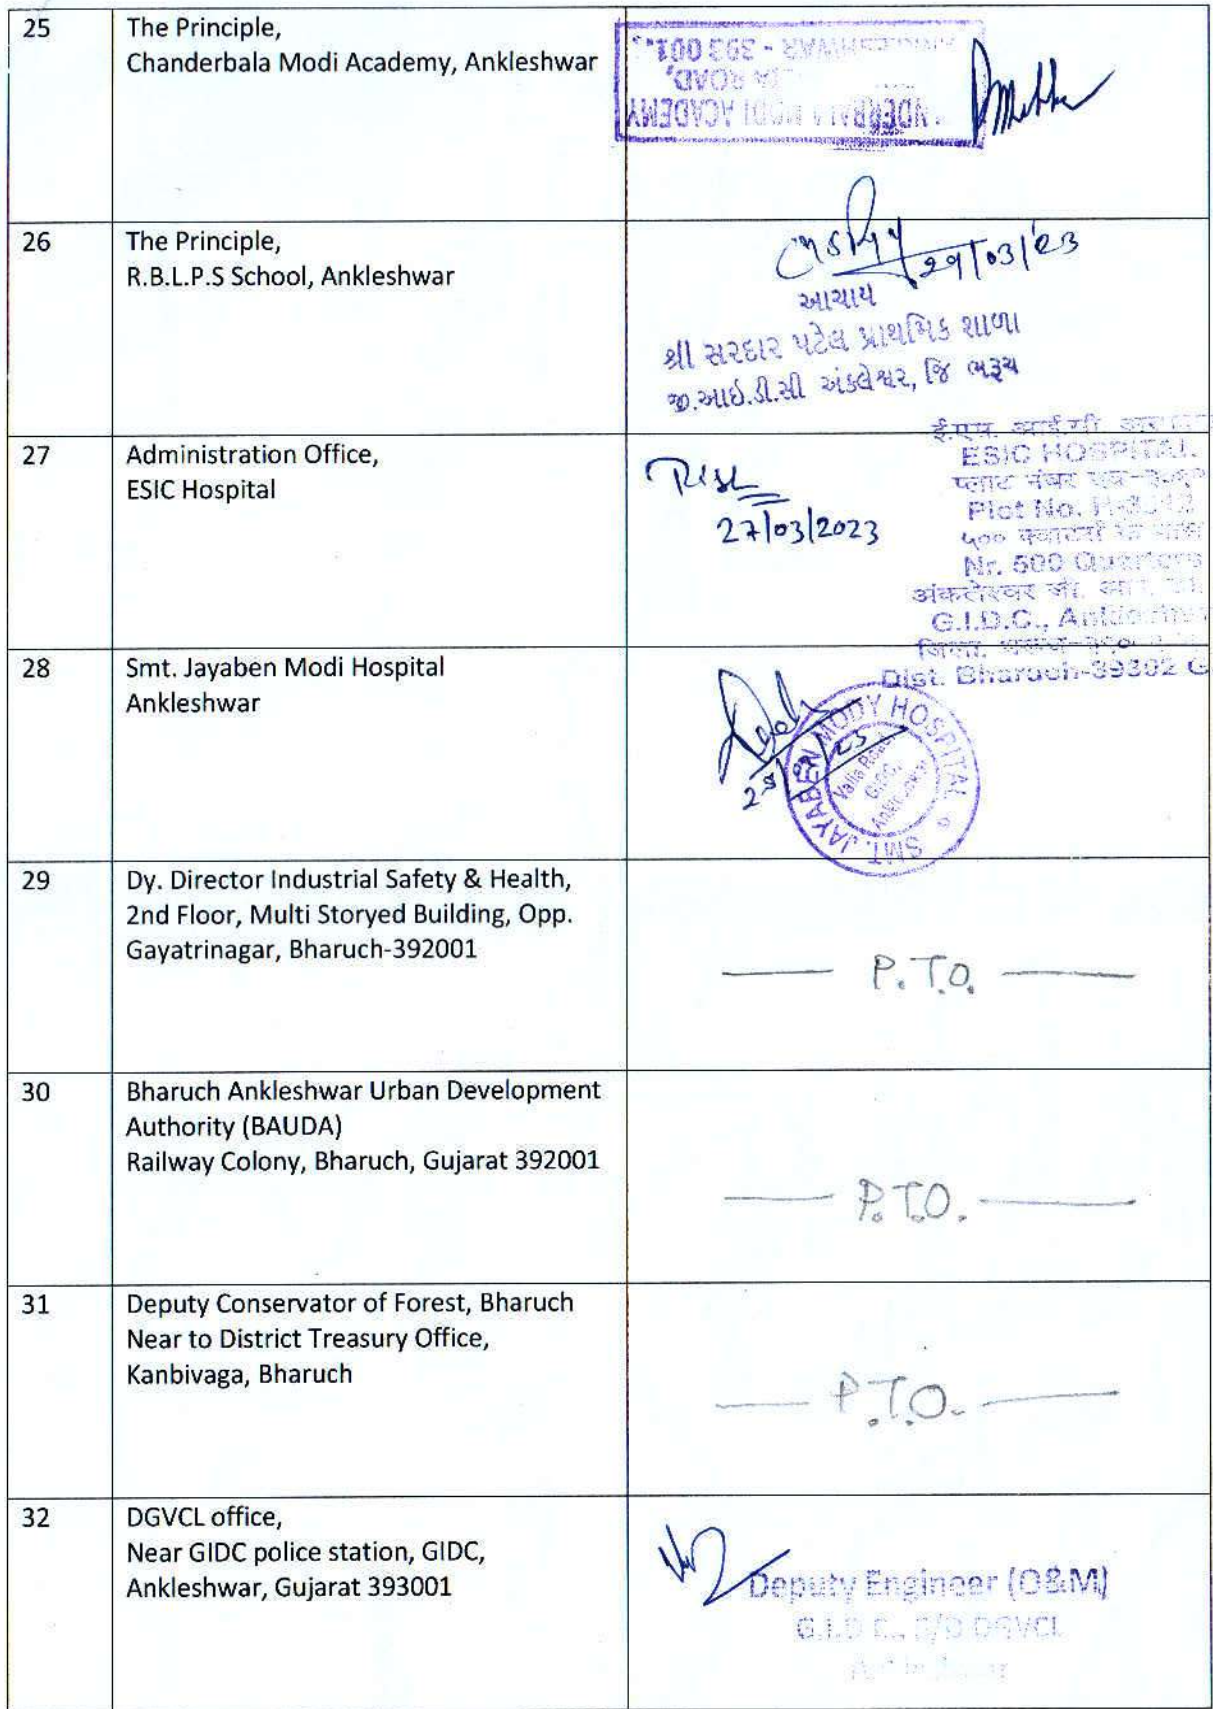 25
The Principle,
Chanderbala Modi Academy, Ankleshwar
ROAD,
MODI ACADEMY
26
The Principle,
R.B.L.P.S School, Ankleshwar
29/03/23
આચાર્ય
શ્રી સરદાર પટેલ પ્રાથમિક શાળા
જી.આઈ.ડી.સી અંકલેશ્વર, જિ ભરૂચ
27
Administration Office,
ESIC Hospital
27/03/2023
ESIC HOSPITAL
Plot No.
Nr. 500 Quarters
G.I.D.C.,
Dist. Bharuch-39302
28
Smt. Jayaben Modi Hospital
Ankleshwar
SMT. JAYABEN MODY HOSPITAL
Valia Road
GIDC,
29
Dy. Director Industrial Safety & Health,
2nd Floor, Multi Storyed Building, Opp.
Gayatrinagar, Bharuch-392001
P.T.O.
30
Bharuch Ankleshwar Urban Development
Authority (BAUDA)
Railway Colony, Bharuch, Gujarat 392001
P.T.O.
31
Deputy Conservator of Forest, Bharuch
Near to District Treasury Office,
Kanbivaga, Bharuch
P.T.O.
32
DGVCL office,
Near GIDC police station, GIDC,
Ankleshwar, Gujarat 393001
Deputy Engineer (O&M)
DGVCL